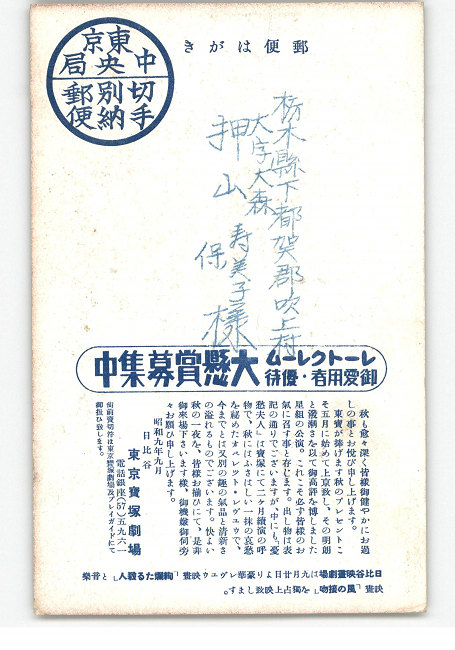 郵便はがき
東京中央局
切手別納郵便
栃木縣下都賀郡吹上村
大字大森
押山寿美子
保
様
レートクレーム
御愛用者・優待
大懸賞募集中
秋も愈々深く皆様御健やかにお過
しの事とお悦び申し上げます。
東寶が捧げます秋のプレゼントこ
そ五月に始めて上京致し、その明朗
と溌溂さを以て御高評を博しました
星組の公演。これこそ必ず皆様のお
氣に召す事と存じます。出し物は表
記の通りでございますが、中にも「憂
愁夫人」は寶塚にて二ヶ月續演の呼
物で、秋にはふさはしい一抹の哀愁
を祕めたオペレット・レヴュウで、
今までとは又別の趣の氣品と清新さ
の溢れるものでございます。快よい
秋の一夜を、皆様お揃ひにて、是非
御來場下さいます様、御機嫌御伺旁
々お願ひ申し上げます。
昭和九年九月
日比谷
東京寶塚劇場
電話銀座(57)五九六一
前賣切符は東京寶塚劇場及プレイガイドにて
御扱ひ致します。
日比谷映畫劇場は九月廿日より豪華レヴュウ映畫「絢爛たる殺人」と音樂
映畫「風の接吻」を獨占上映致します。